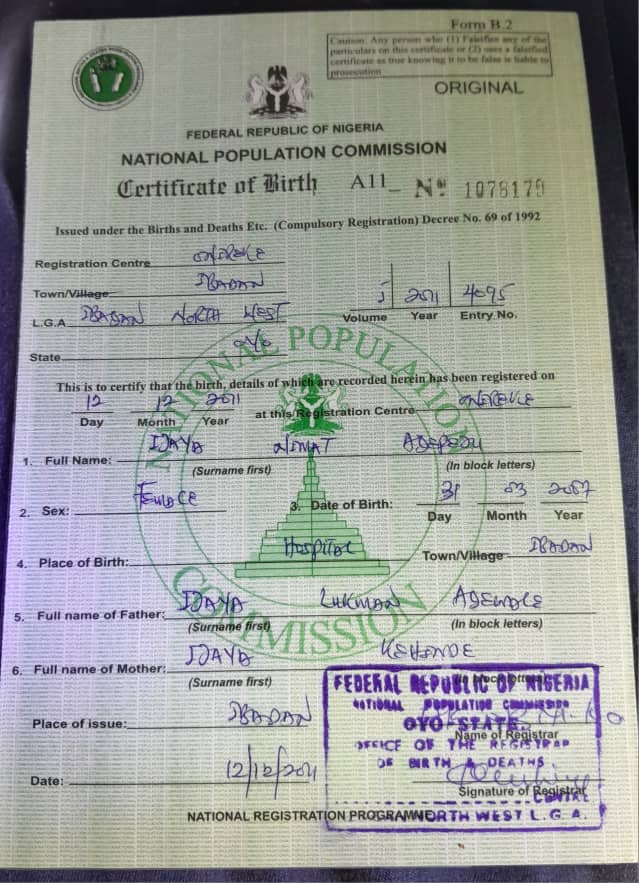 Form B.2
Caution: Any person who (1) Falsifies any of the
particulars on this certificate or (2) uses a falsified
certificate as true knowing it to be false is liable to
prosecution
ORIGINAL
FEDERAL REPUBLIC OF NIGERIA
NATIONAL POPULATION COMMISSION
Certificate of Birth A11_ No 1078179
Issued under the Births and Deaths Etc. (Compulsory Registration) Decree No. 69 of 1992
Registration Centre ONIREKE
Town/Village IBADAN
L.G.A IBADAN NORTH WEST
Volume 5 Year 2011 Entry No. 4095
State OYO
This is to certify that the birth, details of which are recorded herein has been registered on
12 12 2011 at this Registration Centre ONIREKE
Day Month Year
1. Full Name: IJAYA NIMAT ADEPEJU
(Surname first) (In block letters)
2. Sex: FEMALE 3. Date of Birth: 31 03 2007
Day Month Year
4. Place of Birth: HOSPITAL Town/Village IBADAN
5. Full name of Father: IJAYA LUKMAN ADEWALE
(Surname first) (In block letters)
6. Full name of Mother: IJAYA KEHINDE
(Surname first)
Place of issue: IBADAN
Name of Registrar
Date: 12/12/2011
Signature of Registrar
NATIONAL REGISTRATION
NATIONAL POPULATION COMMISSION
FEDERAL REPUBLIC OF NIGERIA
NATIONAL POPULATION COMMISSION
OYO STATE
OFFICE OF THE REGISTRAR
OF BIRTH & DEATHS
NORTH WEST L.G.A.